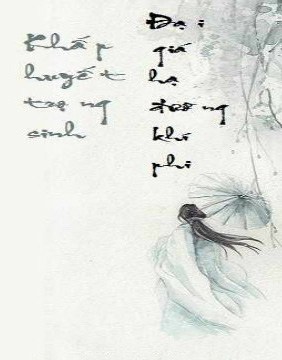 Khấp
huyết
trọng
sinh
Đại
giá
hạ
đường
khí
phi